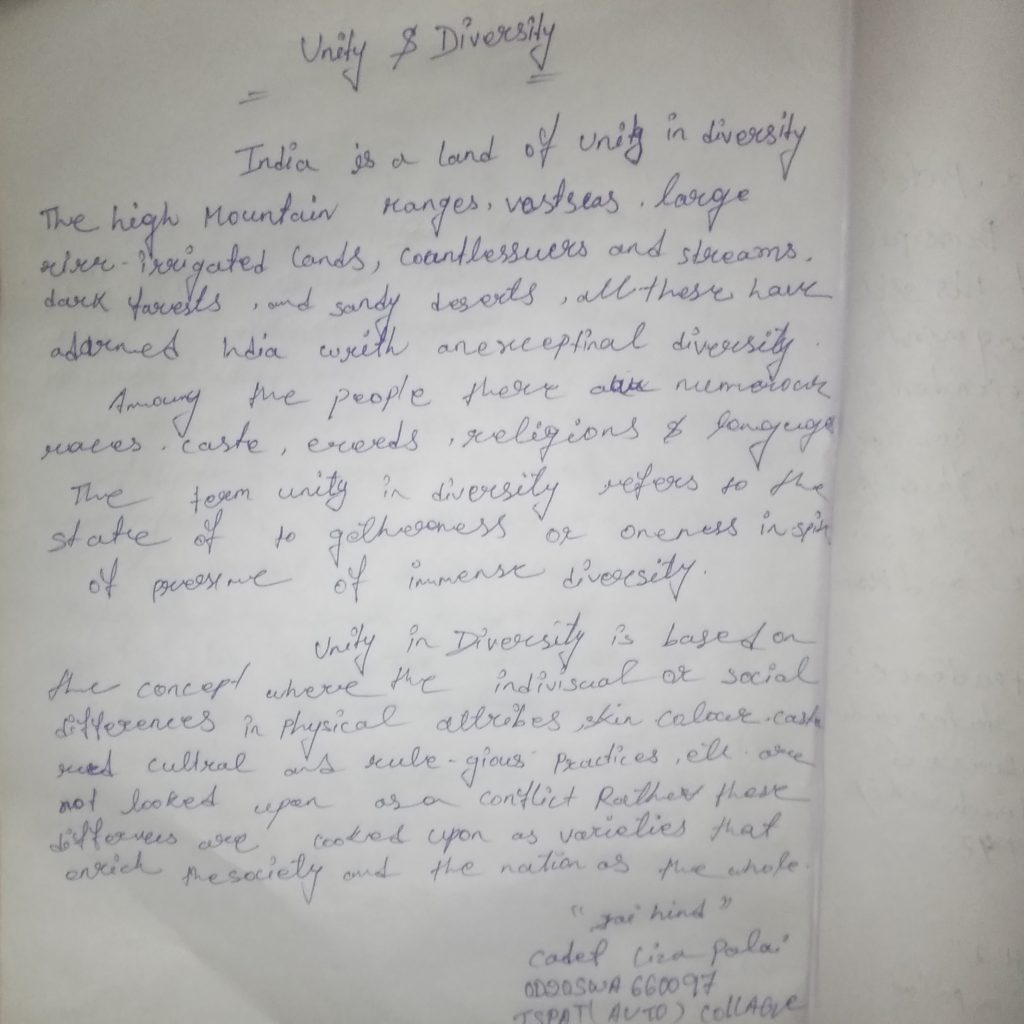 Unity & Diversity
India is a land of Unity in diversity
The high Mountain ranges, vastseas, large
rirr-irrigated Lands, countlessuers and streams,
dark forests, and sandy deserts, all these have
adorned India with anexceptinal diversity.
Amoung the people there are numerour
races, caste, creeds, religions & languge
The term unity in diversity refers to the
state of to getherness or oneness in spite
of presense of immense diversity.
Unity in Diversity is based on
the concept where the indivisual or social
differences in physical attribes, skin colour, caste
cultral and rule-gious practices, etc. are
not looked upon as a conflict Rather these
differnes are cooked upon as varieties that
enrich thesociety and the nation as the whole.
"jai hind"
Cadet Liza Palai
OD20SWA660097
ISPAT (AUTO) COLLAGUE